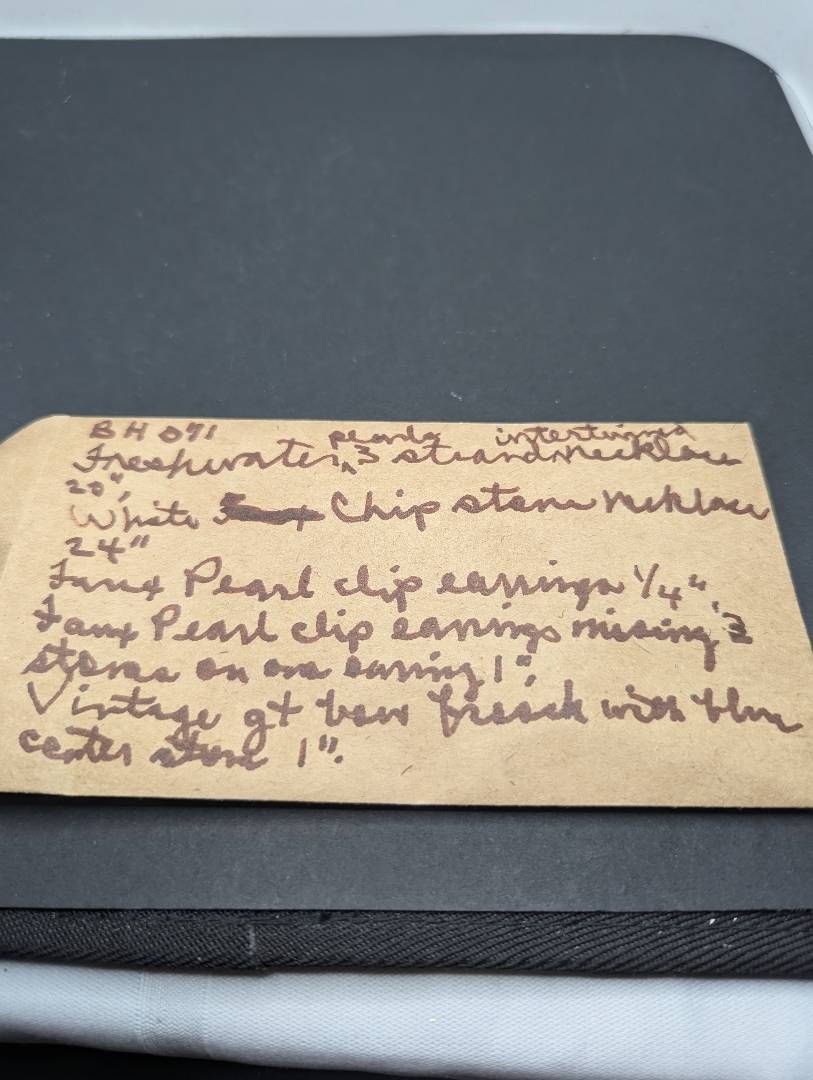 BH 071
pearls intertwined
Freshwater ^ 3 strand necklace
20",
White Chip stone necklace
24"
Faux Pearl clip earrings 1/4",
Faux Pearl clip earrings missing 3
stones on one earring 1",
Vintage gt bow broach with blue
center stone 1".